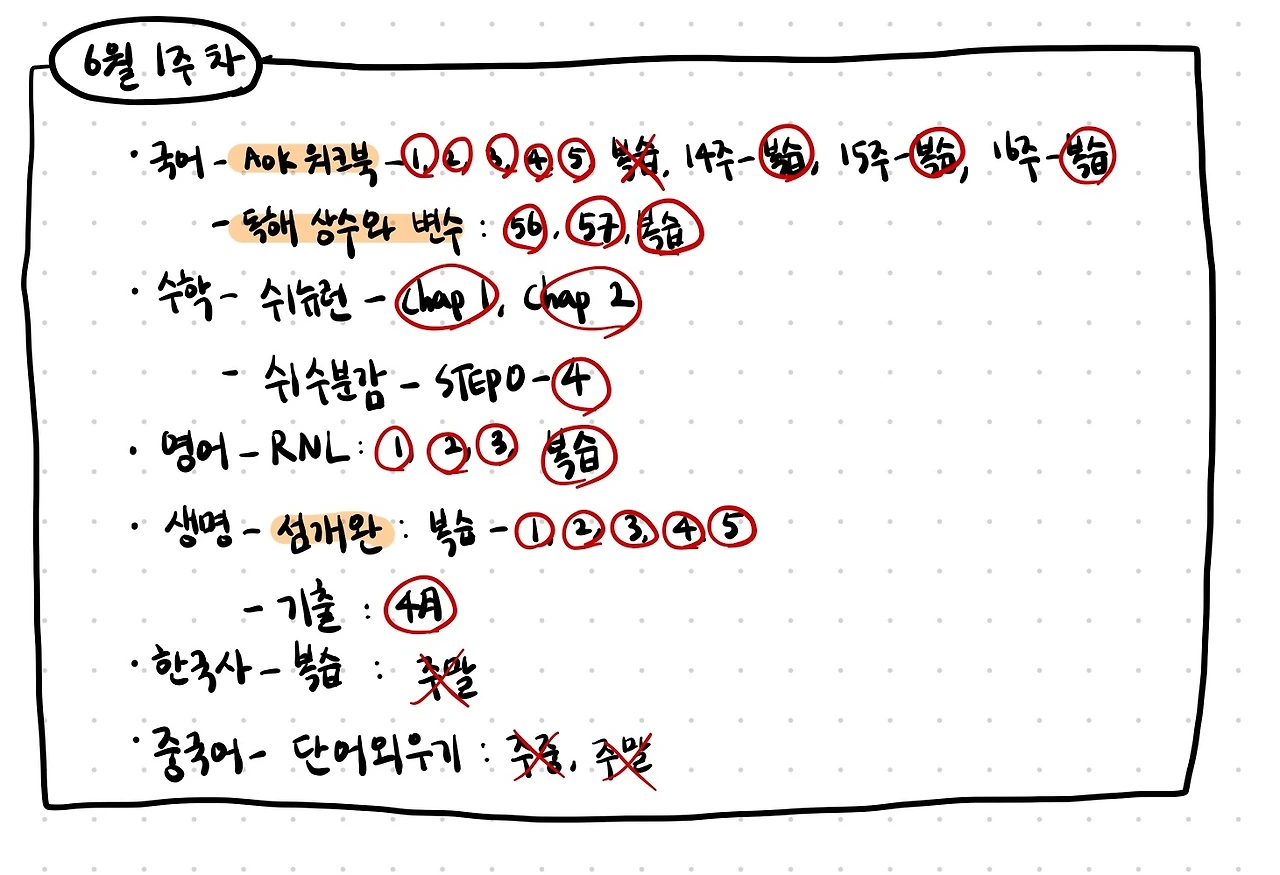 6월 1주차
· 국어 - AOK 워크북 - 1, 2, 3, 4, 5, 복습, 14주 - 복습, 15주 - 복습, 16주 - 복습
- 독해 상수와 변수 : 56, 57, 복습
· 수학 - 쉬뉴런 - Chap 1, Chap 2
- 쉬수분감 - STEP0 - 4
· 영어 - RNL : 1, 2, 3, 복습
· 생명 - 섬개완 : 복습 - 1, 2, 3, 4, 5
- 기출 : 4月
· 한국사 - 복습 : 주말
· 중국어 - 단어외우기 : 주중, 주말